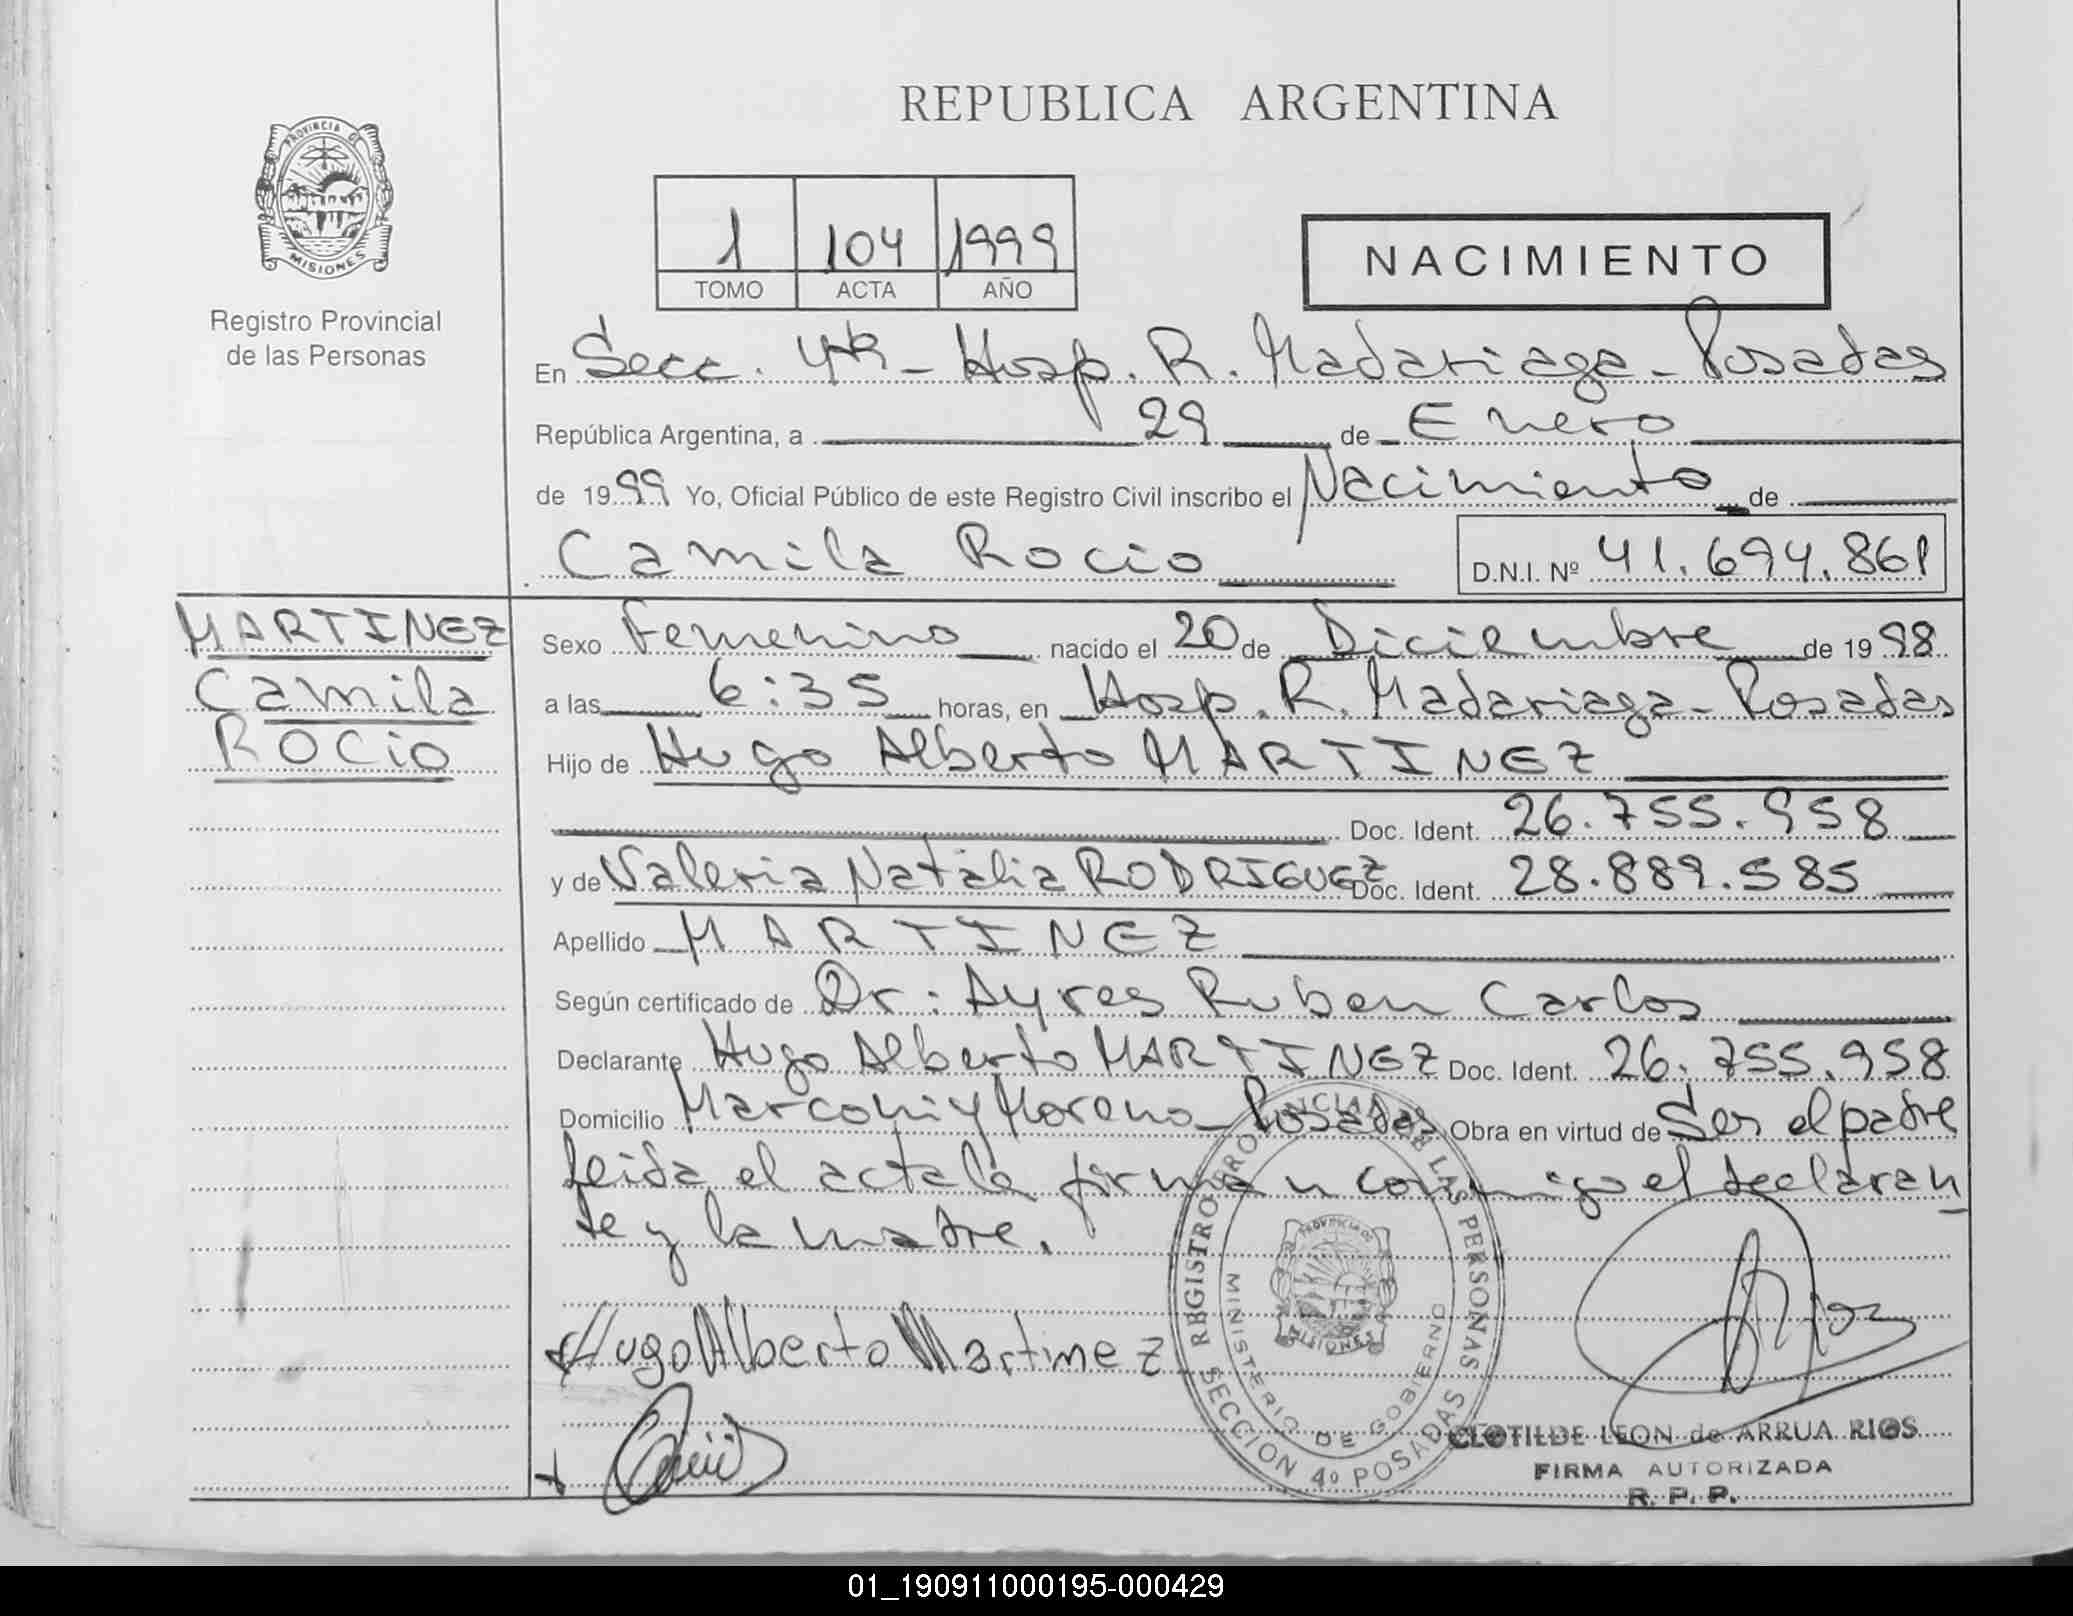 REPUBLICA ARGENTINA
PROVINCIA DE
MISIONES
Registro Provincial
de las Personas
1 104 1999
TOMO ACTA AÑO
NACIMIENTO
En Secc. 4ta - Hosp. R. Madariaga - Posadas
República Argentina, a 29 de Enero
de 1999 Yo, Oficial Público de este Registro Civil inscribo el Nacimiento de
Camila Rocio D.N.I. Nº 41.694.861
MARTINEZ
Camila
ROCIO
Sexo Femenino nacido el 20 de Diciembre de 1998
a las 6:35 horas, en Hosp. R. Madariaga - Posadas
Hijo de Hugo Alberto MARTINEZ
Doc. Ident. 26.755.958
y de Valeria Natalia RODRIGUEZ Doc. Ident. 28.889.585
Apellido MARTINEZ
Según certificado de Dr: Ayres Ruben Carlos
Declarante Hugo Alberto MARTINEZ Doc. Ident. 26.755.958
Domicilio Marconi y Moreno - Posadas Obra en virtud de Ser el padre
leida el acta la firman conmigo el declaran
te y la madre.
Hugo Alberto Martinez
REGISTRO PROVINCIAL DE LAS PERSONAS
MINISTERIO DE GOBIERNO
PROVINCIA DE
MISIONES
SECCION 4º POSADAS
CLOTILDE LEON de ARRUA RIOS
FIRMA AUTORIZADA
R. P. P.
01_190911000195-000429